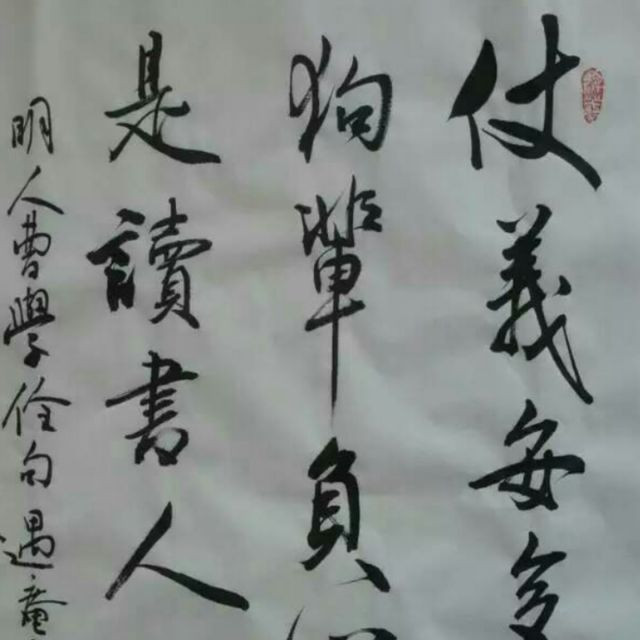 仗義每多
狗輩負心
是讀書人
明人曹學佺句遇庵